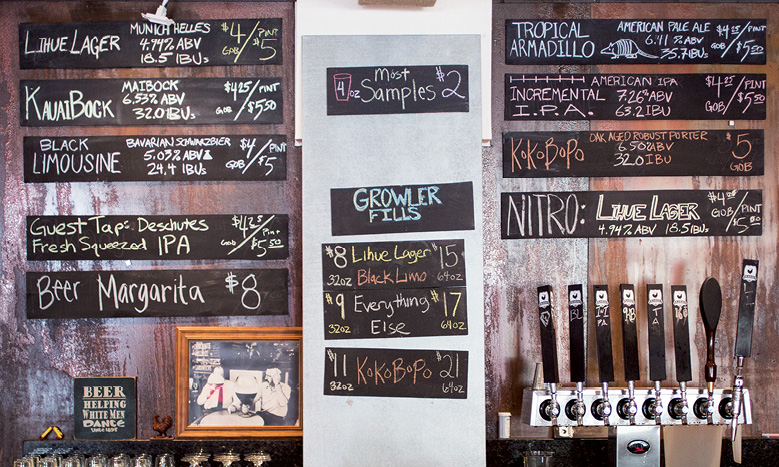 LIHUE LAGER
MUNICH HELLES
4.94% ABV
18.5 IBUs
$4/PINT
GOB/$5
KAUAIBOCK
MAIBOCK
6.53% ABV
32.0 IBUs
$4.25/PINT
GOB/$5.50
BLACK
LIMOUSINE
BAVARIAN SCHWARZBIER
5.03% ABV
24.4 IBUs
$4/PINT
GOB/$5
Guest Tap: Deschutes
Fresh Squeezed IPA
$4.25/Pint
GOB/$5.50
Beer Margarita $8
BEER
HELPING
WHITE MEN
DANCE
4oz
Most
Samples $2
GROWLER
FILLS
$8
32oz
Lihue Lager
Black Limo
$15
64oz
$9
32oz
Everything
Else
$17
64oz
$11
32oz
KoKoBoPo
$21
64oz
TROPICAL
ARMADILLO
AMERICAN PALE ALE
6.41% ABV
35.7 IBUs
$4.25/PINT
GOB/$5.50
INCREMENTAL
I.P.A.
AMERICAN IPA
7.26% ABV
63.2 IBU
$4.25/PINT
GOB/$5.50
KoKoBoPo
OAK AGED ROBUST PORTER
6.50% ABV
32.0 IBU
$5
GOB
NITRO:
LIHUE LAGER
4.94% ABV 18.5 IBUs
GOB/PINT
BL